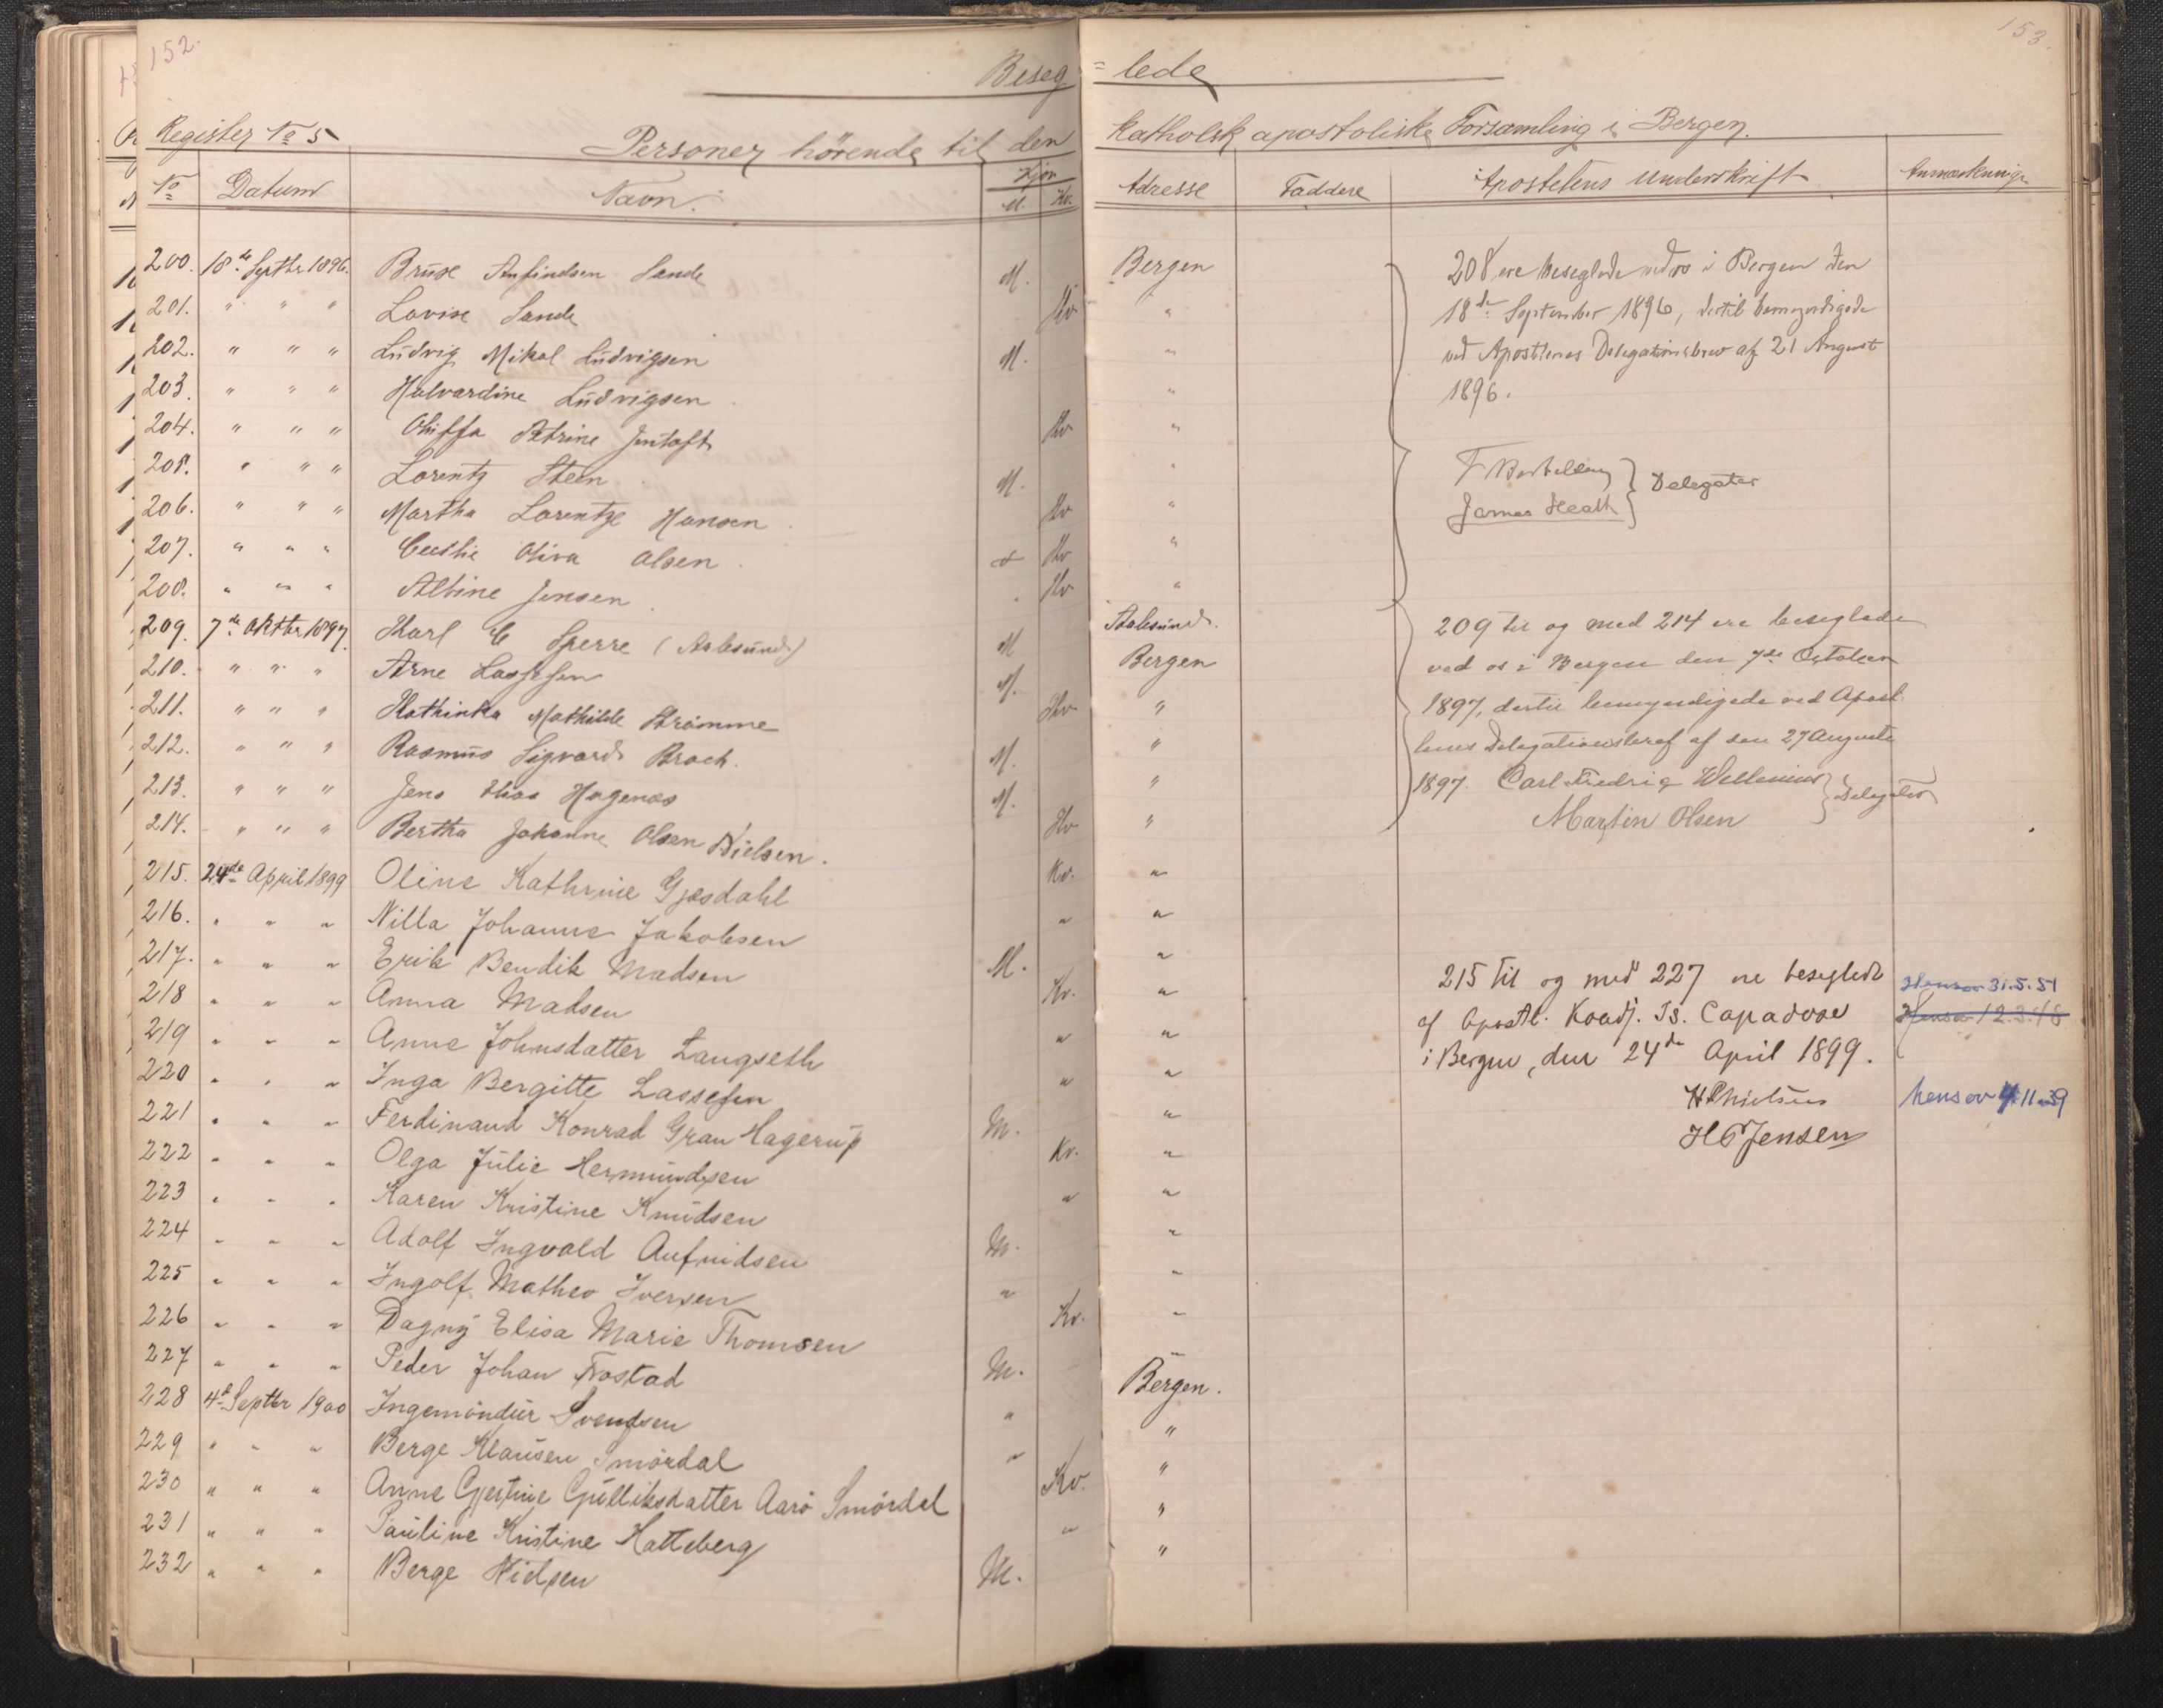 152.
153.
Beseg = lede
Register No 5
Personer hörende til den katholsk apostoliske Forsamling i Bergen.
No Datum Navn. Kjön M. Kv. Adresse Faddere Apostelens Underskrift Anmærkninger
200. 18de Septbr 1896. Anfindsen Sande M. Bergen
201. " " " Lovise Sande Kv "
202. " " " Ludvig Mikal Ludvigsen M. "
203. " " " Halvardine Ludvigsen "
204. " " " Petrine Jentoft Kv "
205. " " " Lorentz Steen M. "
206. " " " Martha Lorentze Hansen Kv "
207. " " " Oliva Olsen Kv "
208. " " " Albine Jensen Kv "
209. 7de Oktbr 1897. Karl E Sperre (Aalesund) M Aalesund.
210. " " " Arne Lassesen M. Bergen
211. " " " Kathinka Mathilde Strömme Kv "
212. " " " Rasmus Sigvard Broch. M. "
213. " " " Jens Hagenæs M. "
214. " " " Bertha Johanne Olsen Nielsen. Kv "
215. 24de April 1899 Oline Kathrine Gjesdahl Kv. "
216. " " " Nilla Johanne Jakobsen " "
217. " " " Erik Bendik Madsen M. "
218 " " " Anna Madsen Kv. "
219 " " " Anne Johnsdatter Langseth " "
220 " " " Inga Bergitte Lassesen " "
221 " " " Ferdinand Konrad Grau Hagerup M. "
222 " " " Olga Julie Hermundsen Kv. "
223 " " " Karen Kristine Knudsen " "
224 " " " Adolf Ingvald Anfindsen M. "
225 " " " Ingolf Matheo Iversen " "
226 " " " Dagny Elisa Marie Thomsen Kv. "
227 " " " Peder Johan Frostad M. "
228 4de Septbr 1900 Ingemöndur Svendsen " Bergen.
229 " " " Berge Klausen Smördal " "
230 " " " Anne Gjertine Gulliksdatter Aarö Smördal Kv. "
231 " " " Pauline Kristine Hatteberg " "
232 " " " Berge Nielsen M. "
208 ere beseglede ved os i Bergen den
18de September 1896, dertil bemyndigede
ved Apostlenes Delegationsbrev af 21 August
1896.
James Heath Delegater
209 til og med 214 ere beseglede
ved os i Bergen den 7de October
1897, dertil bemyndigede ved Apost-
lenes Delegationsbref af den 27 Augusti
1897. Carl Fredrig Wellenius
Martin Olsen Delegater
215 til og med 227 ere beseglede
af Apostl. Koadj. Is. Capadose
i Bergen, den 24de April 1899.
H C Jensen
Hensov 31.5.51
Hensov 12.3.48
hensov 4.11.39